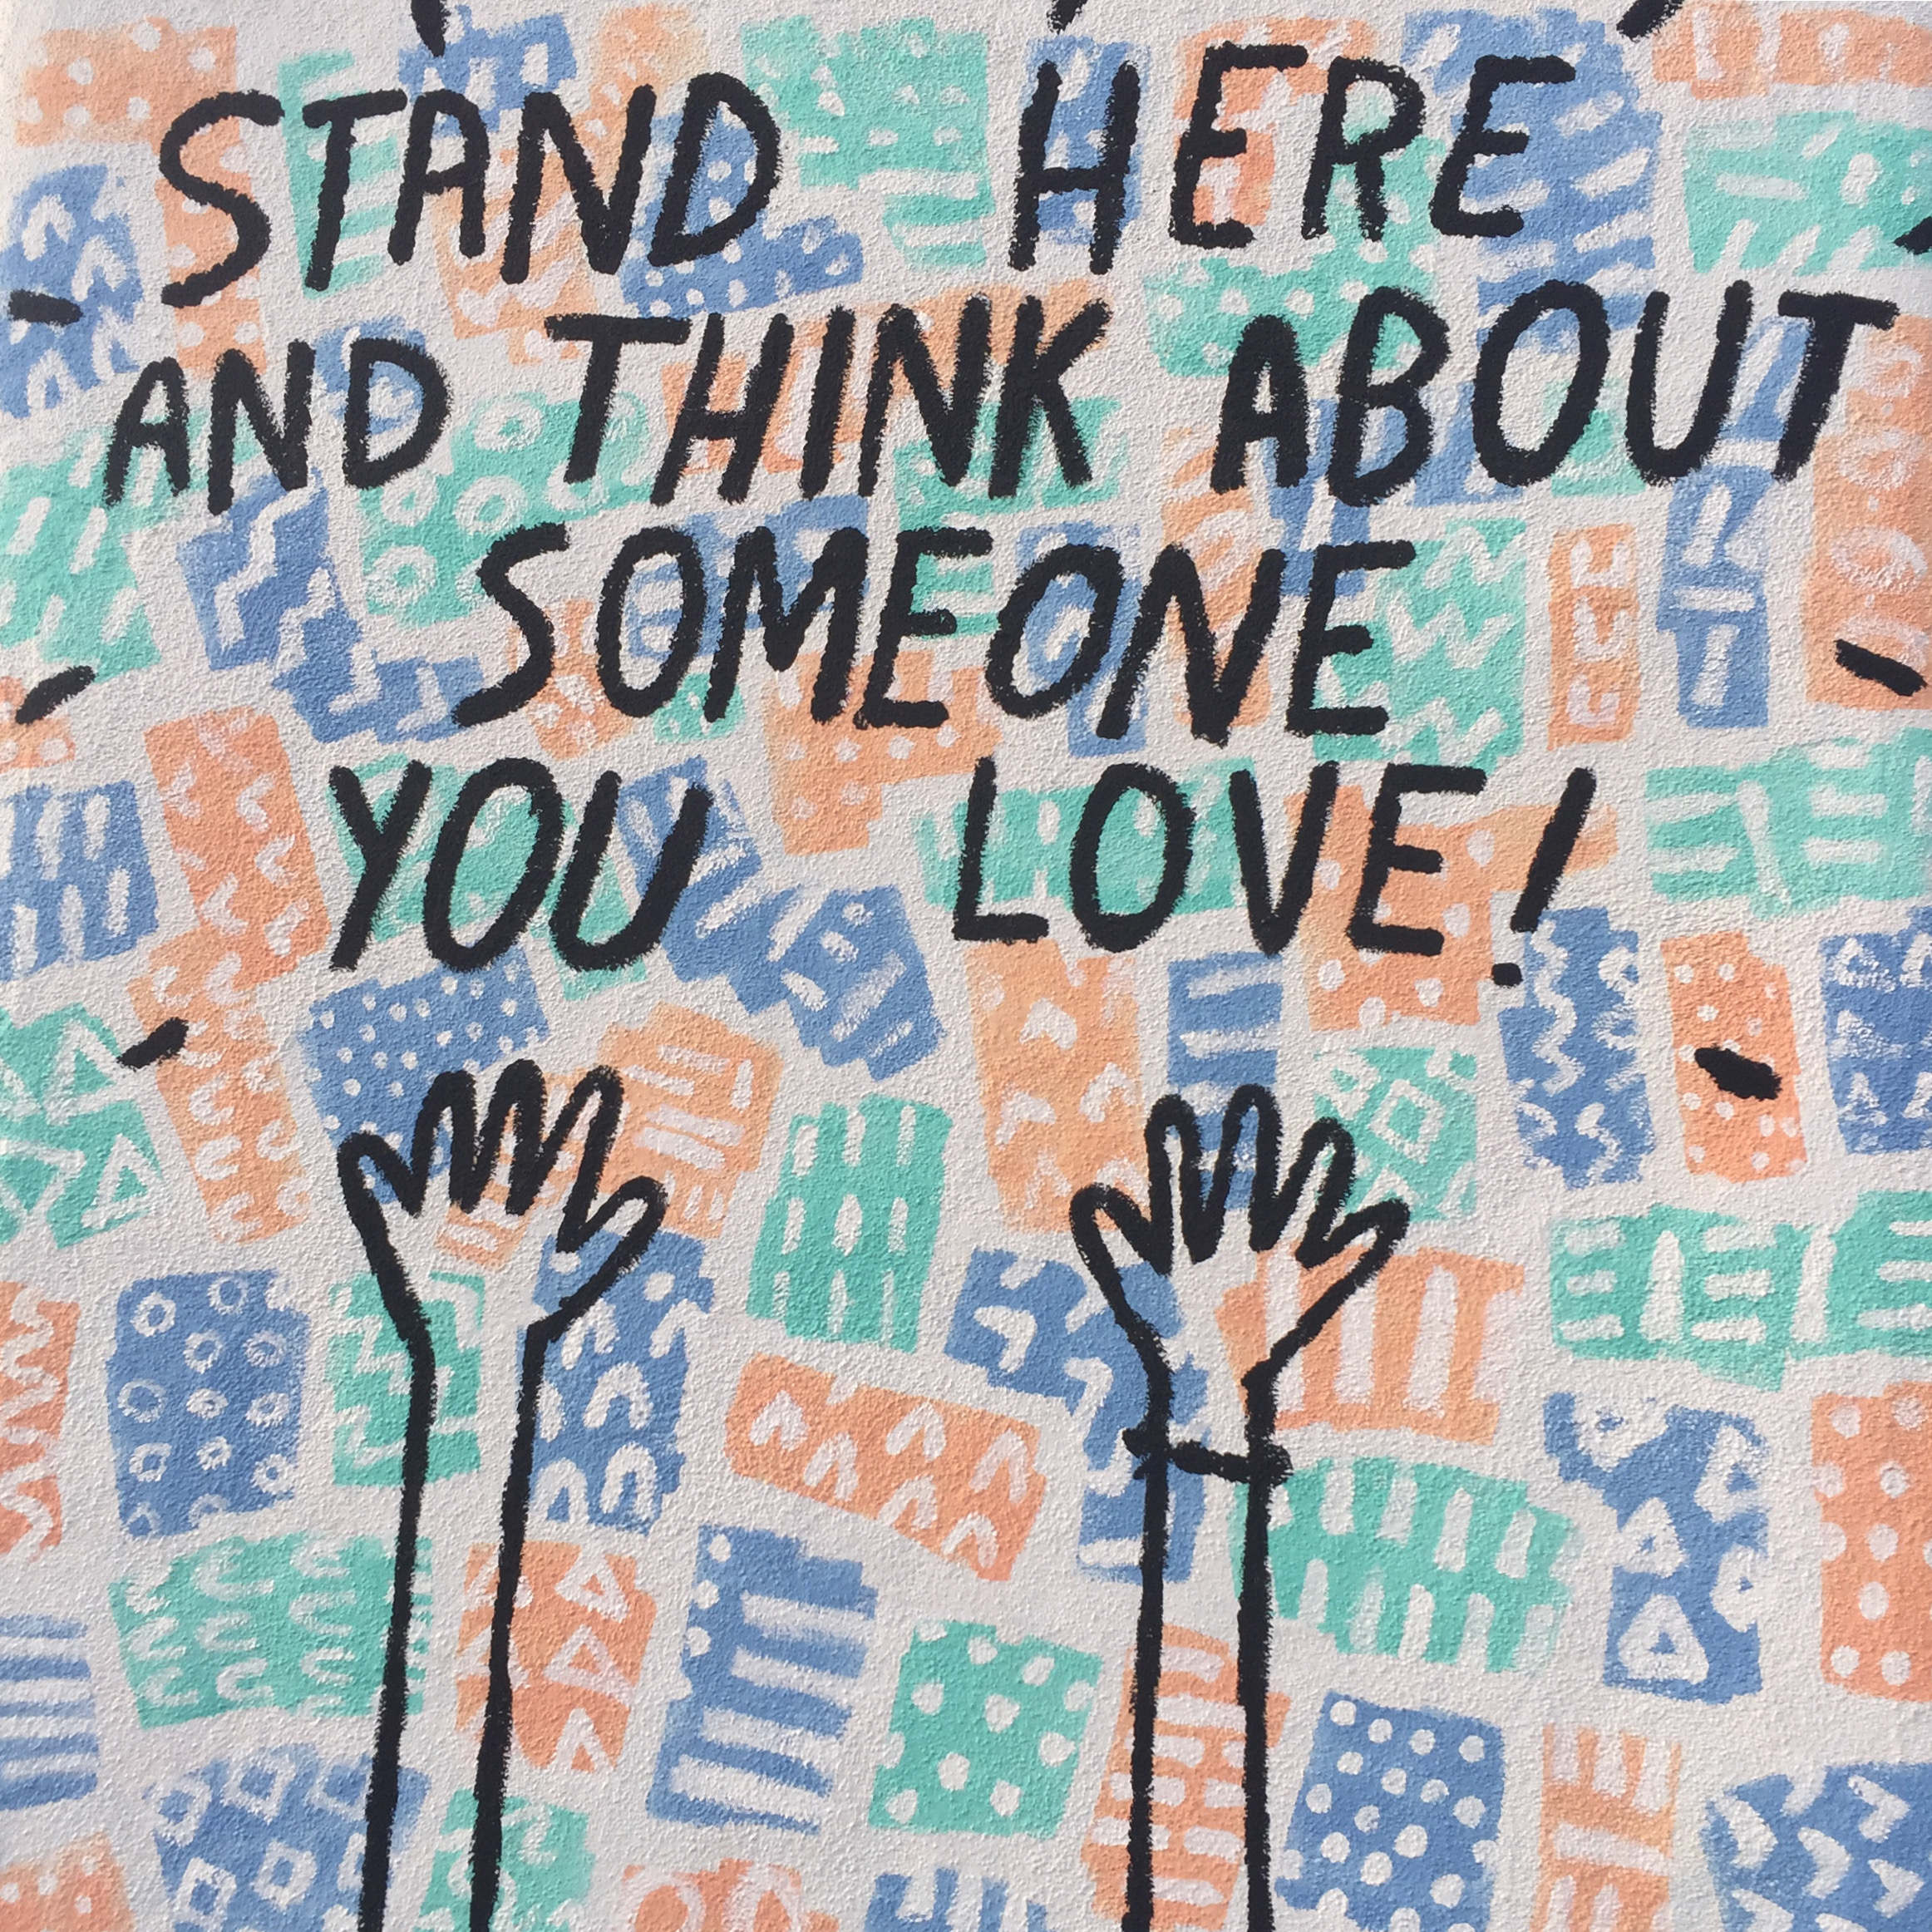 STAND HERE
AND THINK ABOUT
SOMEONE
YOU LOVE!